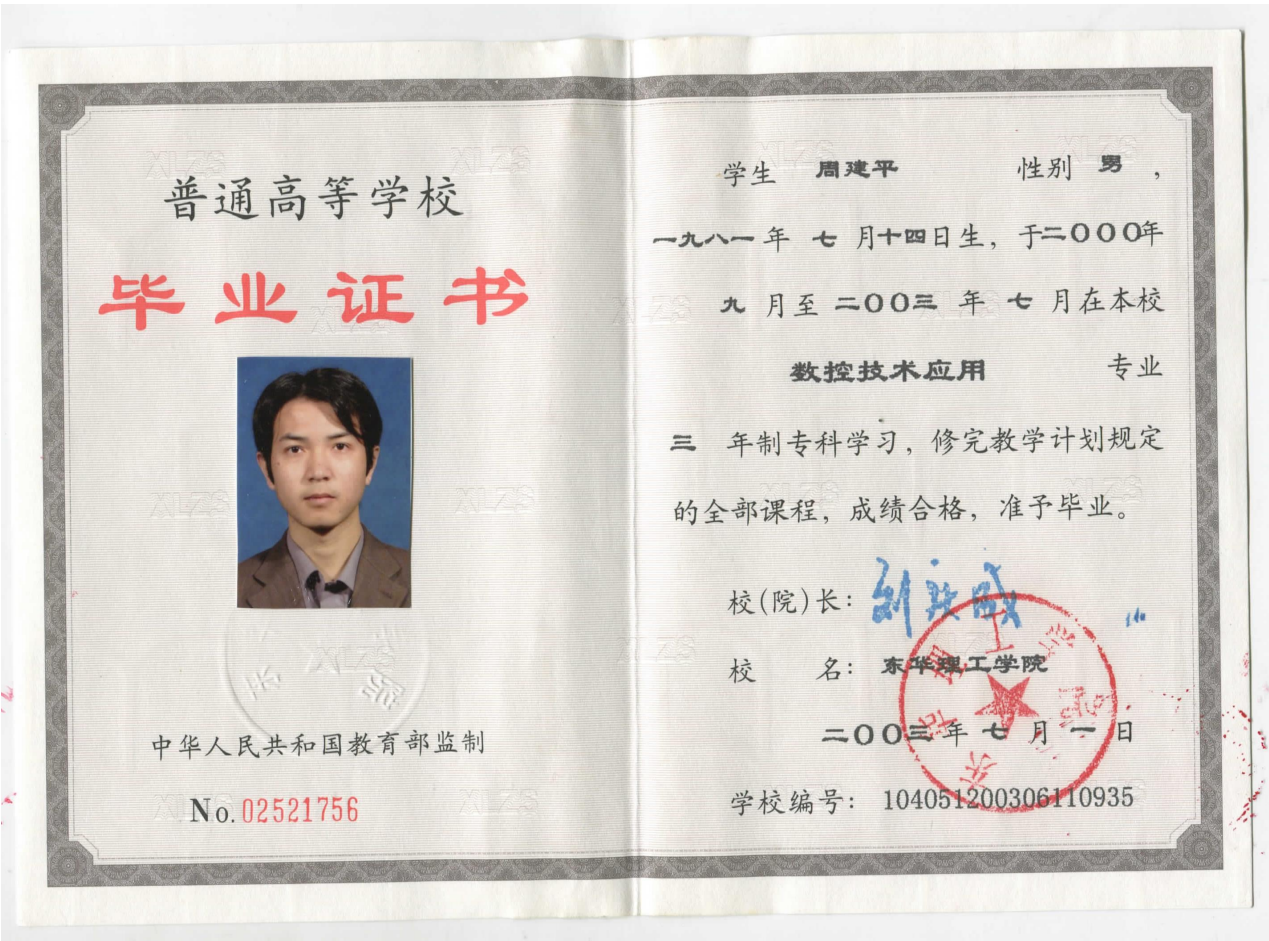 普通高等学校
毕业证书
中华人民共和国教育部监制
No.02521756
学生 周建平 性别 男，
一九八一年 七 月十四日生，于二〇〇〇年
九 月至 二〇〇三 年 七 月在本校
数控技术应用 专业
三 年制专科学习，修完教学计划规定
的全部课程，成绩合格，准予毕业。
校(院)长：
校 名：东华理工学院
二〇〇三年 七 月 一 日
学校编号：104051200306110935
东华理工学院
XLZS